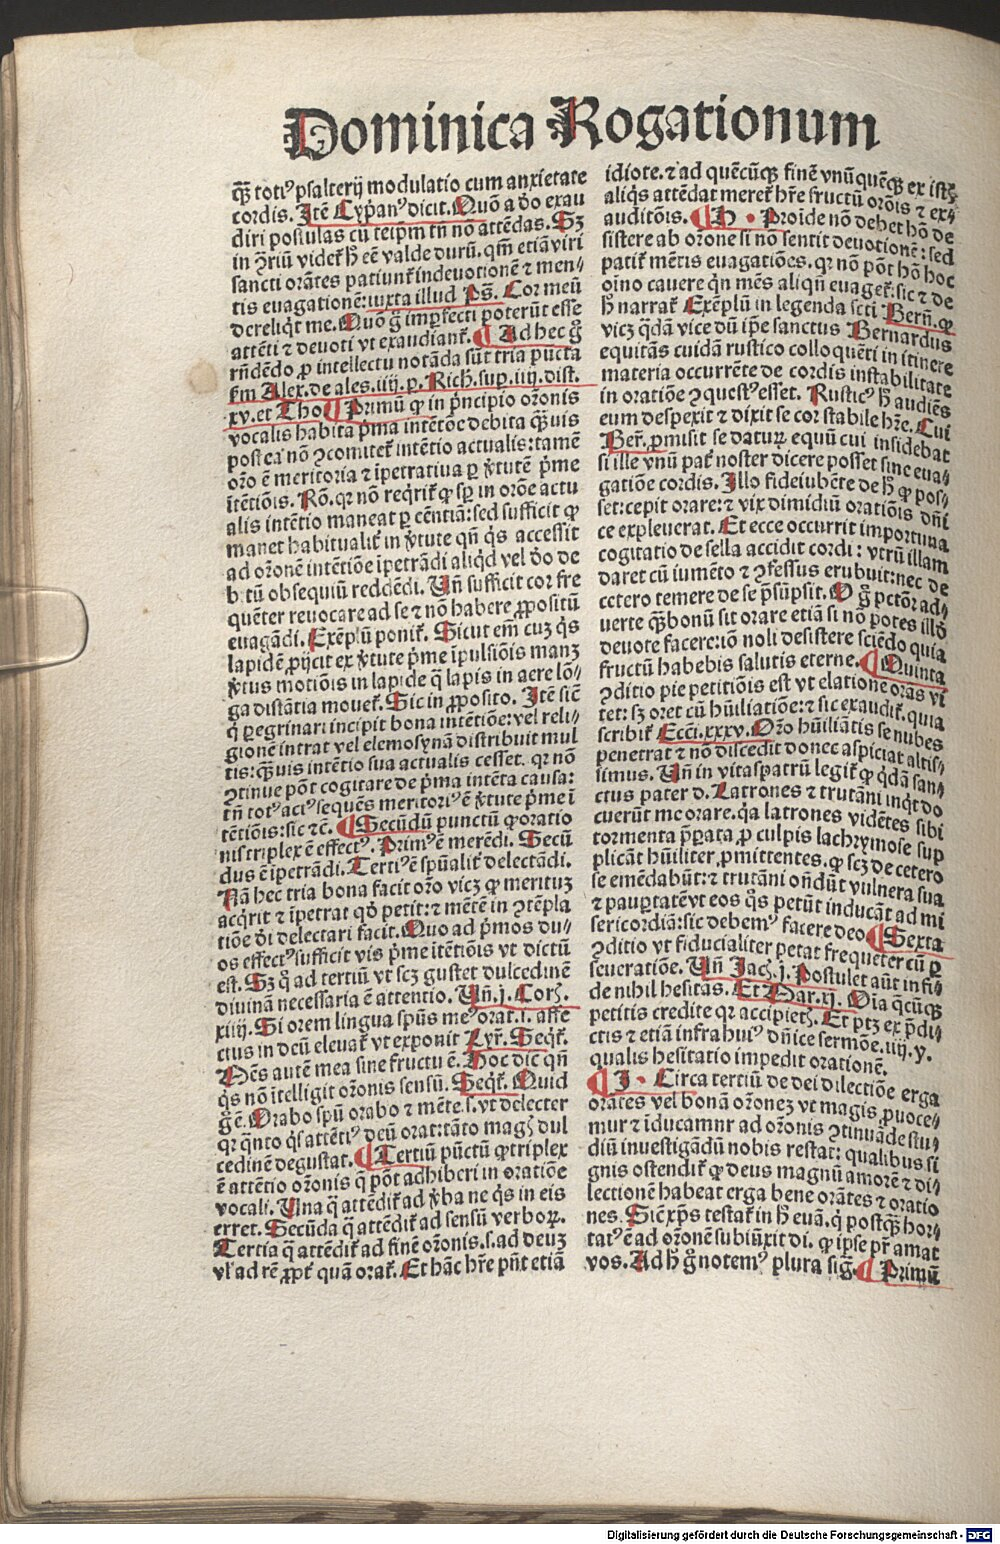 Dominica Rogationum
q̄ꝫ totiꝰ psalterij modulatio cum anxietate
cordis. Itē Cypanꝰ dicit. Quō a do exau
diri postulas cū teipm̄ tn̄ nō attēdas. Sꝫ
in ꝯriū videt᷑ hͦ eē valde durū. qm̄ etiā viri
sancti orātes patiunt᷑ indeuotionē ⁊ men⸗
tis euagationē: iuxta illud Ps̄. Cor meū
dereliqt me. Quō g̊ imꝑfecti poterūt esse
attēti ⁊ deuoti vt exaudiant᷑. ¶ Ad hec g̊
rn̄dēdo ꝓ intellectu notāda sūt tria pūcta
fm Alex. de ales. iiij. p. Rich. sup. iiij. dist.
xv. et Tho ¶ Primū ꝙ in pͥncipio oroͤnis
vocalis habita pͥma intētōe debita q̄ꝫuis
postea nō ꝯcomitet᷑ intētio actualis: tamē
orō ē meritoria ⁊ īpetratiua ꝑ ꝟtutē pͥme
ītētiōis. Rō. qꝛ nō reqrit᷑ ꝙ sꝑ in orōe actu
alis intētio maneat ꝑ cēntiā: sed sufficit ꝙ
manet habitualit᷑ in ꝟtute qn̄ qͥs accessit
ad orōnē intētiōe īpetrādi aliqd vel do de
bitū obsequiū reddēdi. Vn̄ sufficit cor fre
quēter reuocare ad se ⁊ nō habere ꝓpositū
euagādi. Exēplū ponit᷑. Sicut em̄ cuꝫ qͥs
lapidē ꝓijcit ex ꝟtute pͥme īpulsiōis manꝫ
ꝟtus motiōis in lapide q̄ lapis in aere lō⸗
ga distātia mouet᷑. Sic in ꝓposito. Itē sic̄
qͥ ꝑegrinari incipit bona intētiōe: vel reli⸗
gionē intrat vel elemosynā distribuit mul
tis: q̄ꝫuis intētio sua actualis cesset. qꝛ nō
ꝯtinue pōt cogitare de pͥma intēta causa:
tn̄ totꝰ actꝰ sequēs meritoriꝰ ē ꝟtute pͥme ī
tētiōis: sic ⁊c̄. ¶ Secūdū punctū ꝙ oratio
nis triplex ē effectꝰ. Primꝰ ē merēdi. Secū
dus ē īpetrādi. Tertiꝰ ē spūalit᷑ delectādi.
Nā hec tria bona facit orō vicꝫ ꝙ merituꝫ
acqrit ⁊ īpetrat qd petit: ⁊ mētē in ꝯtēpla
tiōe di delectari facit. Quo ad pͥmos du⸗
os effectꝰ sufficit vis pͥme itētiōis vt dictū
est. Sꝫ qͦ ad tertiū vt scꝫ gustet dulcedinē
diuinā necessaria ē attentio. Vn̄. j. Corh.
xiiij. Si orem lingua spūs meꝰ orat. i. affe
ctus in deū eleuat᷑ vt exponit Lyr̄. Seqt᷑.
Mēs autē mea sine fructu ē. Hoc dic̄ qn̄
qͥs nō intelligit orōnis sensū. Seqt᷑. Quid
g̊ ē. Orabo spū orabo ⁊ mēte. s. vt delecter
qꝛ qn̄to qs attētiꝰ deū orat: tāto magꝭ dul
cedinē degustat. ¶ Tertiū pūctū ꝙ triplex
ē attētio orōnis q̄ pōt adhiberi in oratiōe
vocali. Vna q̄ attēdit᷑ ad ꝟba ne qͥs in eis
erret. Secūda q̄ attēdit᷑ ad sensū verboꝝ.
Tertia q̄ attēdit᷑ ad finē orōnis. s. ad deuꝫ
vl ad rē ꝓpt᷑ quā orat᷑. Et hāc hr̄e pn̄t etiā
idiote. ⁊ ad quēcūqꝫ finē vnūquēqꝫ ex istꝭ
aliqͥs attēdat meret᷑ hr̄e fructū orōis ⁊ ex⸗
auditōis. ¶ H. Proide nō debet hō de
sistere ab orōne si nō sentit deuotionē: sed
patit᷑ mētis euagatiōes. qꝛ nō pōt hō hoc
oino cauere qn̄ mēs aliqn̄ euaget᷑: sic ⁊ de
hͦ narrat᷑ Exēplū in legenda scti Bern̄. ꝙ
vicꝫ qdā vice dū ip̄e sanctus Bernardus
equitās cuidā rustico colloquēti in itinere
materia occurrēte de cordis instabilitate
in oratiōe ꝯquestꝰ esset. Rusticꝰ hͦ audiēs
eum despexit ⁊ dixit se cor stabile hr̄e. Cui
Ber̄. ꝓmisit se daturꝝ equū cui insidebat
si ille vnū pat᷑ noster dicere posset sine eua⸗
gatiōe cordis. Illo fideiubēte de hͦ ꝙ pos⸗
set: cepit orare: ⁊ vix dimidiū oratiōis dn̄i
ce expleuerat. Et ecce occurrit importuna
cogitatio de sella accidit cordi: vtrū illam
daret cū iumēto ⁊ ꝯfessus erubuit: nec de
cetero temere de se p̄sūpsit. O g̊ pctōr ad⸗
uerte q̄ꝫ bonū sit orare etiā si nō potes illd
deuote facere: iō noli desistere sciēdo quia
fructū habebis salutis eterne. ¶ Quinta
ꝯditio pie petitiōis est vt elatione orās vi
tet: sꝫ oret cū hūiliatiōe: ⁊ sic exaudit᷑. quia
scribit᷑ Ecci. xxxv. Orō hūiliātis se nubes
penetrat ⁊ nō discedit donec aspiciat altis⸗
simus. Vn̄ in vitaspatrū legit᷑ ꝙ qdā san⸗
ctus pater d. Latrones ⁊ trutāni inqt do
cuerūt me orare. qa latrones vidētes sibi
tormenta ꝑparata ꝓ culpis lachrymose sup
plicāt hūiliter ꝓmittentes. ꝙ scꝫ de cetero
se emēdabūt: ⁊ trutāni on̄dūt vulnera sua
⁊ pauꝑtatē vt eos qͥs petūt inducāt ad mi
sericordiā: sic debemꝰ facere deo ¶ Sexta
ꝯditio vt fiducialiter petat frequēter cū ꝑ
seueratiōe. Vn̄ Jach. j. Postulet aūt in fi⸗
de nihil hesitās. Et Mar. xj. Oīa qͨcūqꝫ
petitis credite qꝛ accipietꝭ. Et ptꝫ ex p̄di⸗
ctis ⁊ etiā infra huiꝰ dn̄ice sermōe. iiij. y.
qualis hesitatio impedit orationē.
¶ J. Circa tertiū de dei dilectiōe erga
orātes vel bonā orōneꝫ vt magis ꝓuoce⸗
mur ⁊ īducamur ad orōnis ꝯtinuāde stu⸗
diū inuestigādū nobis restat: qualibus si
gnis ostendit᷑ ꝙ deus magnū amorē ⁊ di⸗
lectionē habeat erga bene orātes ⁊ oratio
nes. Sic̄ xp̄s testat᷑ in hͦ euā. qͥ postq̄ꝫ hor⸗
tatꝰ ē ad orōnē subiūxit di. ꝙ ipse pr̄ amat
vos. Ad hͦ g̊ notemꝰ plura sig̊. ¶ Primū
Digitalisierung gefördert durch die Deutsche Forschungsgemeinschaft - DFG